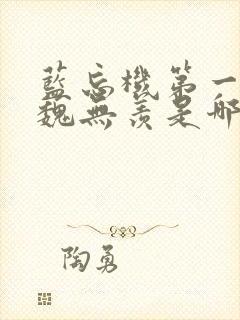 藍忘機第一
魏無羨是哪
陶勇